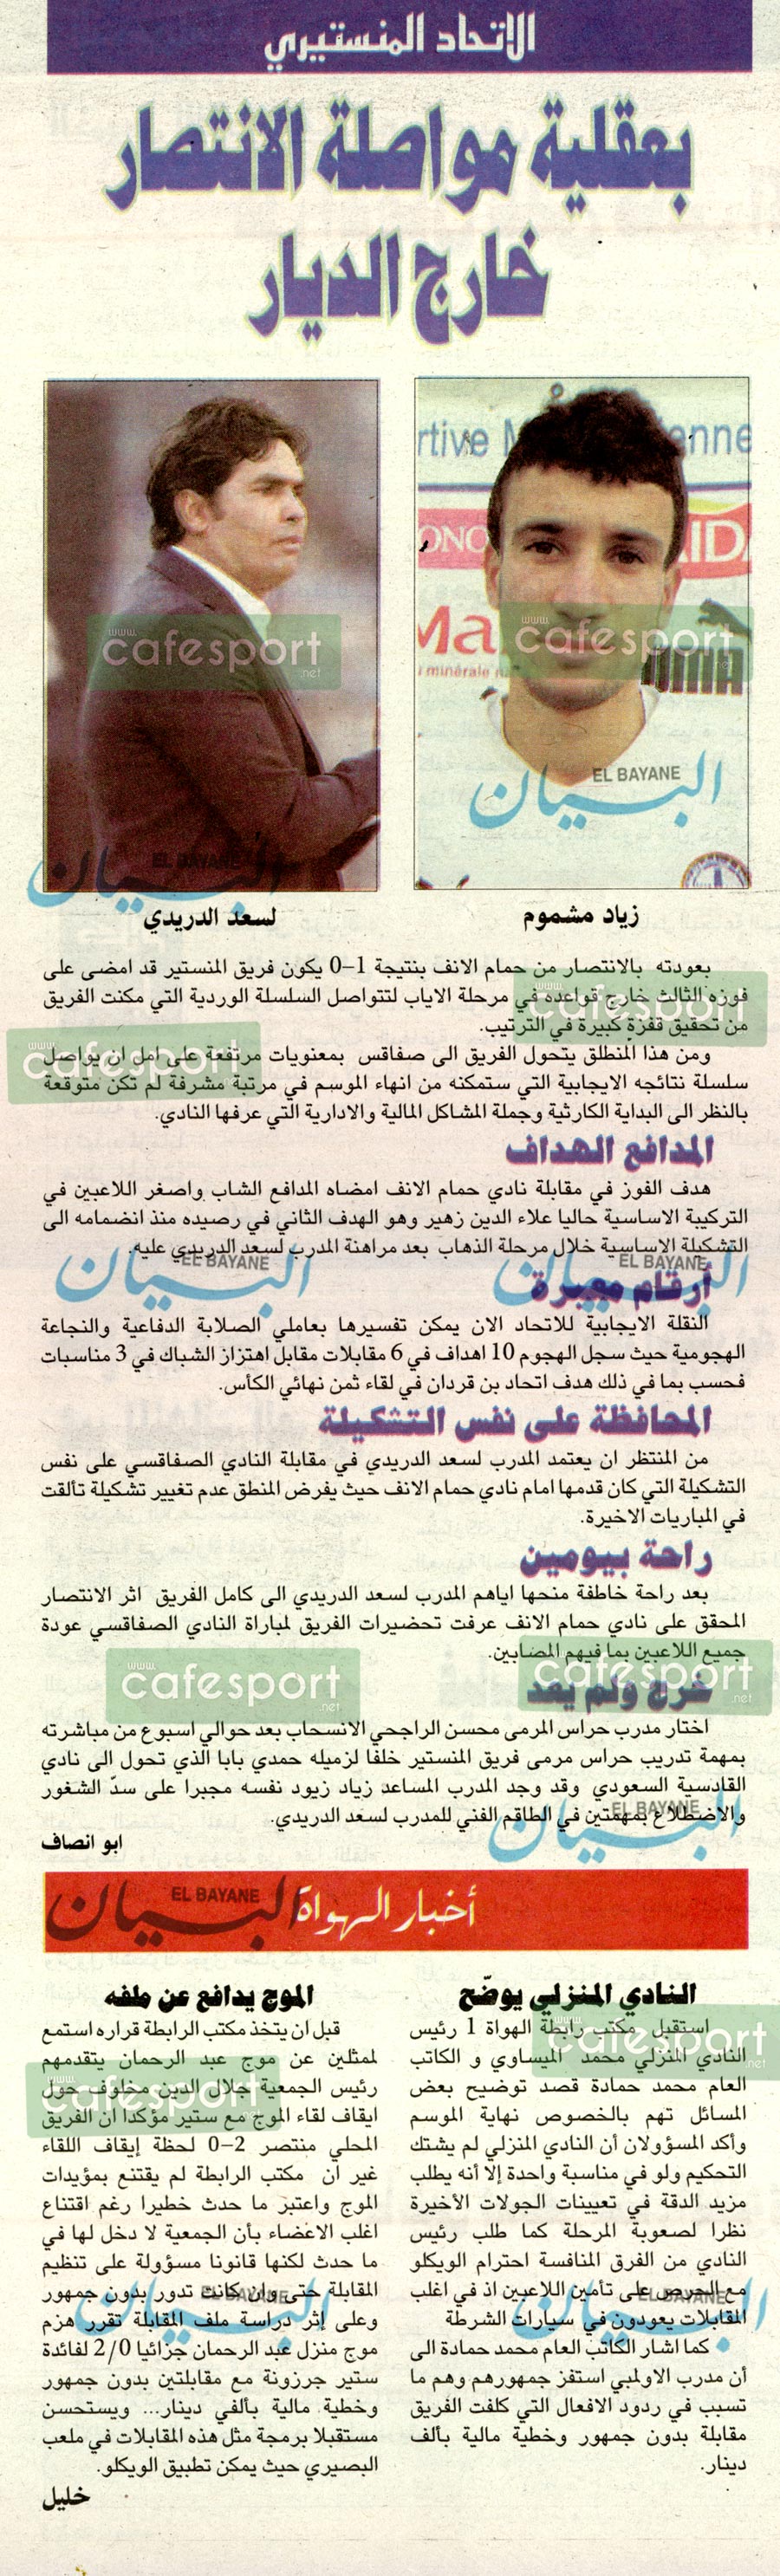 الاتحاد المنستيري
بعقلية مواصلة الانتصار
خارج الديار
rtive M enne
ONO RIDA
Ma
minérale
www.cafesport.net
www.cafesport.net
EL BAYANE
البيان
EL BAYANE
البيان
زياد مشموم
لسعد الدريدي
بعودته بالانتصار من حمام الانف بنتيجة 1-0 يكون فريق المنستير قد امضى على
فوزه الثالث خارج قواعده في مرحلة الاياب لتتواصل السلسلة الوردية التي مكنت الفريق
من تحقيق قفزة كبيرة في الترتيب.
www.cafesport.net
www.cafesport.net
ومن هذا المنطلق يتحول الفريق الى صفاقس بمعنويات مرتفعة على امل ان يواصل
سلسلة نتائجه الايجابية التي ستمكنه من انهاء الموسم في مرتبة مشرفة لم تكن متوقعة
بالنظر الى البداية الكارثية وجملة المشاكل المالية والادارية التي عرفها النادي.
المدافع الهداف
هدف الفوز في مقابلة نادي حمام الانف امضاه المدافع الشاب واصغر اللاعبين في
التركيبة الاساسية حاليا علاء الدين زهير وهو الهدف الثاني في رصيده منذ انضمامه الى
التشكيلة الاساسية خلال مرحلة الذهاب بعد مراهنة المدرب لسعد الدريدي عليه.
EL BAYANE
البيان
EL BAYANE
البيان
أرقام معبرة
النقلة الايجابية للاتحاد الان يمكن تفسيرها بعاملي الصلابة الدفاعية والنجاعة
الهجومية حيث سجل الهجوم 10 اهداف في 6 مقابلات مقابل اهتزاز الشباك في 3 مناسبات
فحسب بما في ذلك هدف اتحاد بن قردان في لقاء ثمن نهائي الكأس.
المحافظة على نفس التشكيلة
من المنتظر ان يعتمد المدرب لسعد الدريدي في مقابلة النادي الصفاقسي على نفس
التشكيلة التي كان قدمها امام نادي حمام الانف حيث يفرض المنطق عدم تغيير تشكيلة تألقت
في المباريات الاخيرة.
راحة بيومين
بعد راحة خاطفة منحها اياهم المدرب لسعد الدريدي الى كامل الفريق اثر الانتصار
المحقق على نادي حمام الانف عرفت تحضيرات الفريق لمباراة النادي الصفاقسي عودة
جميع اللاعبين بما فيهم المصابين.
www.cafesport.net
www.cafesport.net
خرج ولم يعد
اختار مدرب حراس المرمى محسن الراجحي الانسحاب بعد حوالي اسبوع من مباشرته
بمهمة تدريب حراس مرمى فريق المنستير خلفا لزميله حمدي بابا الذي تحول الى نادي
القادسية السعودي وقد وجد المدرب المساعد زياد زيود نفسه مجبرا على سدّ الشغور
والاضطلاع بمهمتين في الطاقم الفني للمدرب لسعد الدريدي.
EL BAYANE
البيان
ابو انصاف
أخبار الهواة
EL BAYANE
البيان
النادي المنزلي يوضّح
استقبل مكتب رابطة الهواة 1 رئيس
النادي المنزلي محمد الميساوي و الكاتب
العام محمد حمادة قصد توضيح بعض
المسائل تهم بالخصوص نهاية الموسم
وأكد المسؤولان أن النادي المنزلي لم يشتك
التحكيم ولو في مناسبة واحدة إلا أنه يطلب
مزيد الدقة في تعيينات الجولات الأخيرة
نظرا لصعوبة المرحلة كما طلب رئيس
النادي من الفرق المنافسة احترام الويكلو
مع الحرص على تأمين اللاعبين اذ في اغلب
المقابلات يعودون في سيارات الشرطة
كما اشار الكاتب العام محمد حمادة الى
أن مدرب الاولمبي استفز جمهورهم وهم ما
تسبب في ردود الافعال التي كلفت الفريق
مقابلة بدون جمهور وخطية مالية بألف
دينار.
www.cafesport.net
EL BAYANE
البيان
الموج يدافع عن ملفه
قبل ان يتخذ مكتب الرابطة قراره استمع
لممثلين عن موج عبد الرحمان يتقدمهم
رئيس الجمعية جلال الدين مخلوف حول
ايقاف لقاء الموج مع ستير مؤكدا ان الفريق
المحلي منتصر 2-0 لحظة إيقاف اللقاء
غير ان مكتب الرابطة لم يقتنع بمؤيدات
الموج واعتبر ما حدث خطيرا رغم اقتناع
اغلب الاعضاء بأن الجمعية لا دخل لها في
ما حدث لكنها قانونا مسؤولة على تنظيم
المقابلة حتى وان كانت تدور بدون جمهور
وعلى إثر دراسة ملف المقابلة تقرر هزم
موج منزل عبد الرحمان جزائيا 2/0 لفائدة
ستير جرزونة مع مقابلتين بدون جمهور
وخطية مالية بألفي دينار... ويستحسن
مستقبلا برمجة مثل هذه المقابلات في ملعب
البصيري حيث يمكن تطبيق الويكلو.
www.cafesport.net
EL BAYANE
البيان
خليل